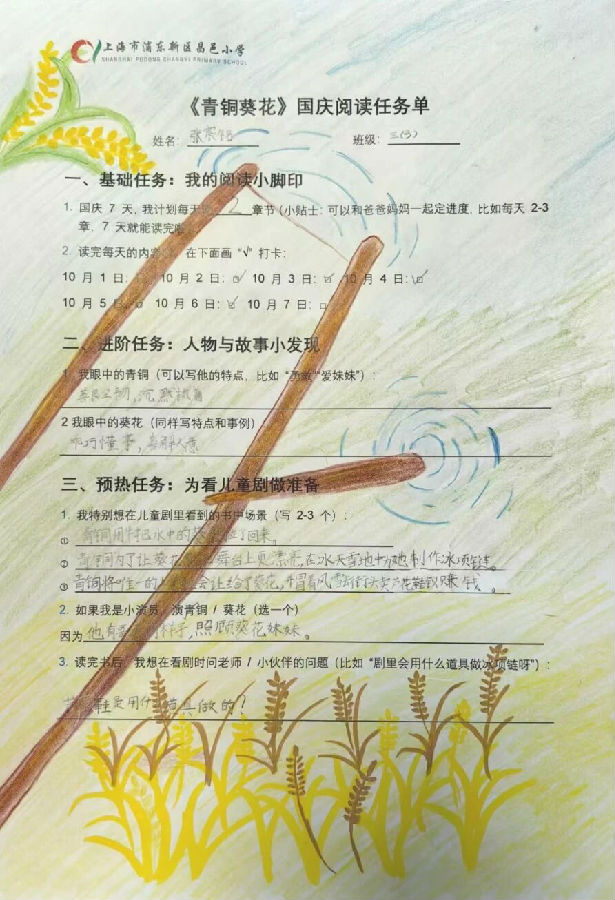 上海市浦东新区昌邑小学
SHANGHAI PUDONG CHANGYI PRIMARY SCHOOL
《青铜葵花》国庆阅读任务单
姓名: 张 班级: 三(3)
一、基础任务：我的阅读小脚印
1. 国庆 7 天，我计划每天 2 章节（小贴士：可以和爸爸妈妈一起定进度，比如每天 2-3
章，7 天就能读完
2. 读完每天的内容 在下面画“√”打卡：
10 月 1 日： 10 月 2 日：☑ 10 月 3 日：☑ 10 月 4 日：☑
10 月 5 日： 10 月 6 日：☑ 10 月 7 日：□
二、进阶任务：人物与故事小发现
1. 我眼中的青铜（可以写他的特点，比如“勇敢”“爱妹妹”）：
沉默
2 我眼中的葵花（同样写特点和事例）：
乖巧懂事，善解人意
三、预热任务：为看儿童剧做准备
1. 我特别想在儿童剧里看到的书中场景（写 2-3 个）：
① 青铜用 把水中的 了回来。
② 青铜为了让葵花 舞台上更漂亮，在冰天雪地中为她制作冰项链。
③ 青铜将唯一的上 会让给了葵花，冒着风雪 去卖芦花鞋 赚钱。
2. 如果我是小演员，演青铜 / 葵花（选一个）
因为 他有 ，照顾葵花妹妹。
3. 读完书后，我想在看剧时问老师 / 小伙伴的问题（比如“剧里会用什么道具做冰项链呀”）：
鞋是用什 道具做的！